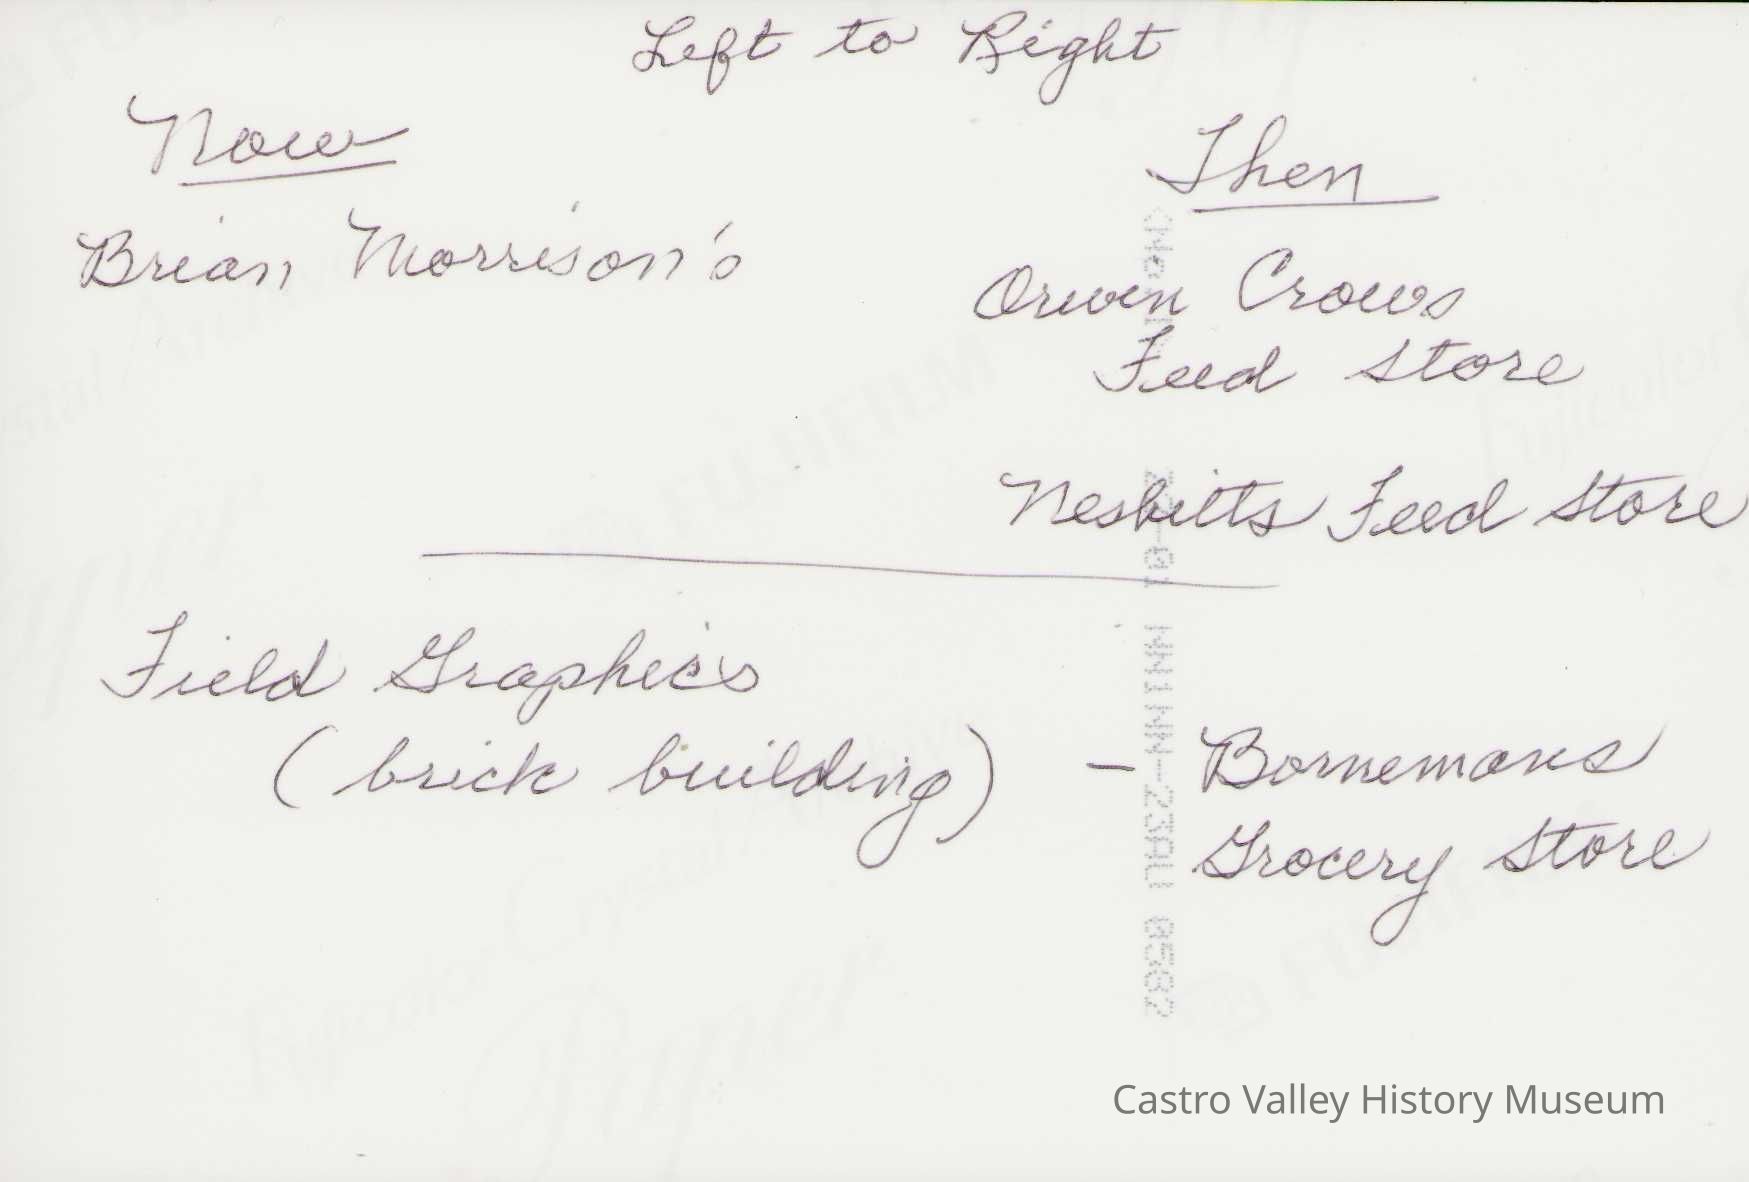 Left to Right
Now
Then
Brian Morrison's
Orwen Crows
Feed Store
Nesbitts Feed Store
Field Graphics
(brick building) - Bornemans
Grocery Store
FUJIFILM
Castro Valley History Museum